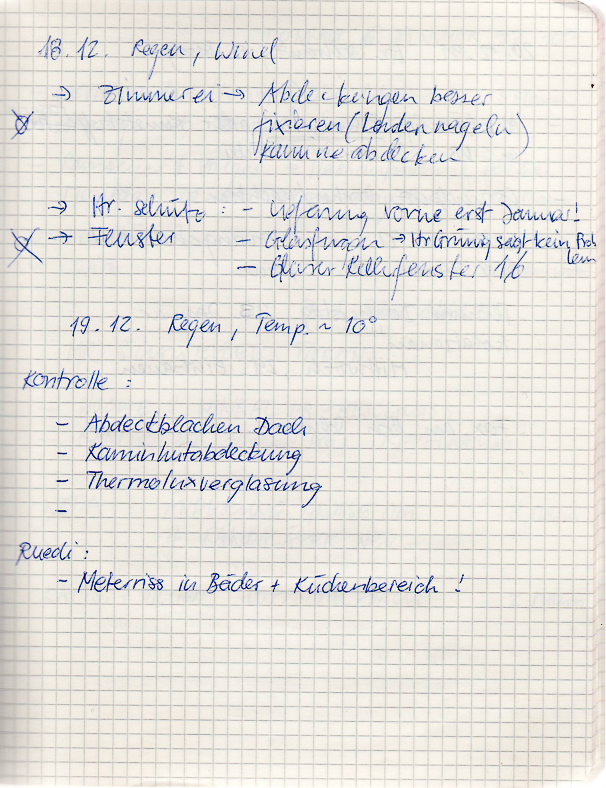 18.12. Regen, Wind
→ Zimmerei → Abdeckungen besser
fixieren (Latten nageln)
Kamine abdecken
→ Hr. Schütz : – Lieferung vorne erst Januar!
→ Fenster – → Hr Grünig sagt kein Prob
lem
– Kellerfenster 1/6
19.12. Regen, Temp. ~ 10°
Kontrolle :
– Abdeckblachen Dach
– Kaminhutabdeckung
– Thermoluxverglasung
–
Ruedi :
– Meterriss in Bäder + Küchenbereich !